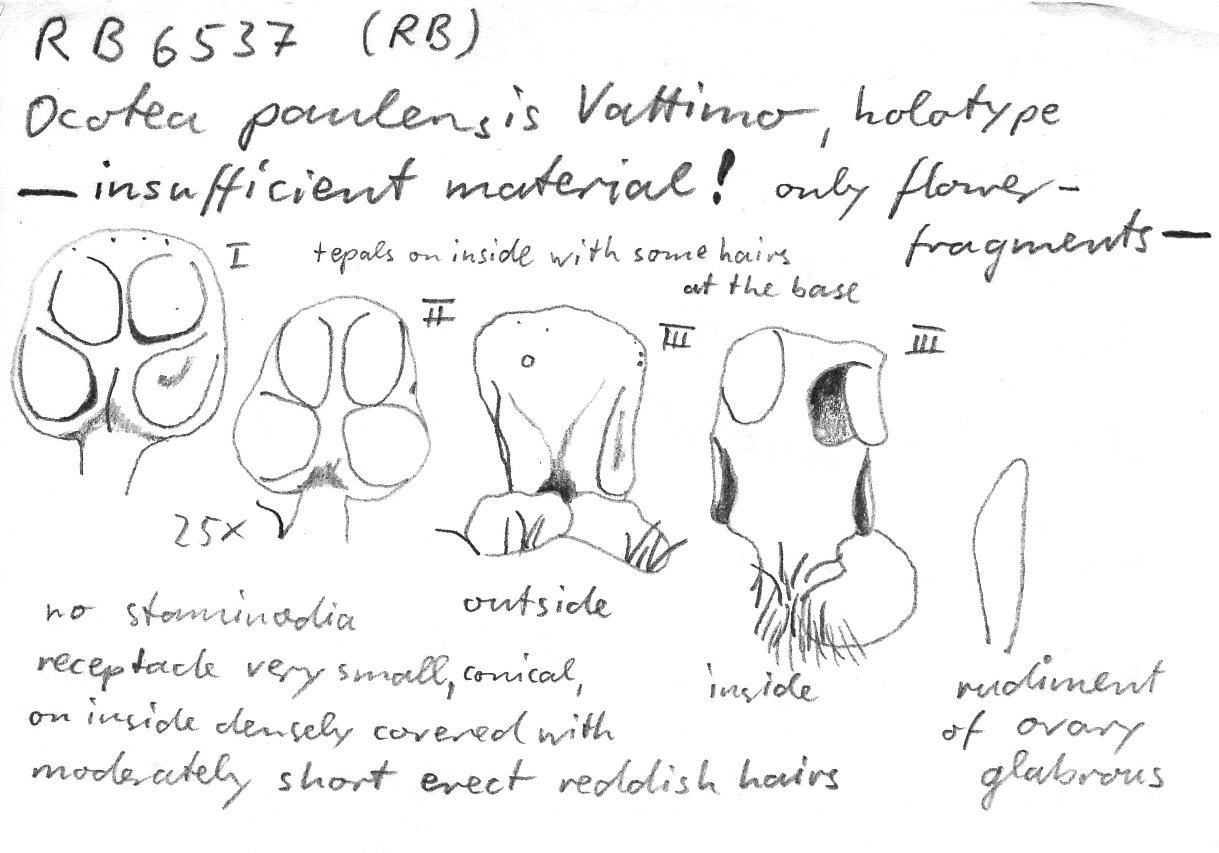 RB 6537 (RB)
Ocotea paulensis Vattimo, holotype
— insufficient material! only flower-
fragments —
I
tepals on inside with some hairs
at the base
II
III
III
25x
no staminodia
outside
receptacle very small, conical,
inside
rudiment
on inside densely covered with
of ovary
moderately short erect reddish hairs
glabrous